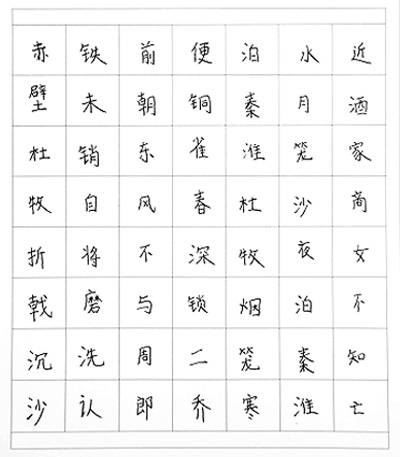 赤壁杜牧折戟沉沙
铁未销自将磨洗认
前朝东风不与周郎
便铜雀春深锁二乔
泊秦淮杜牧烟笼寒
水月笼沙夜泊秦淮
近酒家商女不知亡